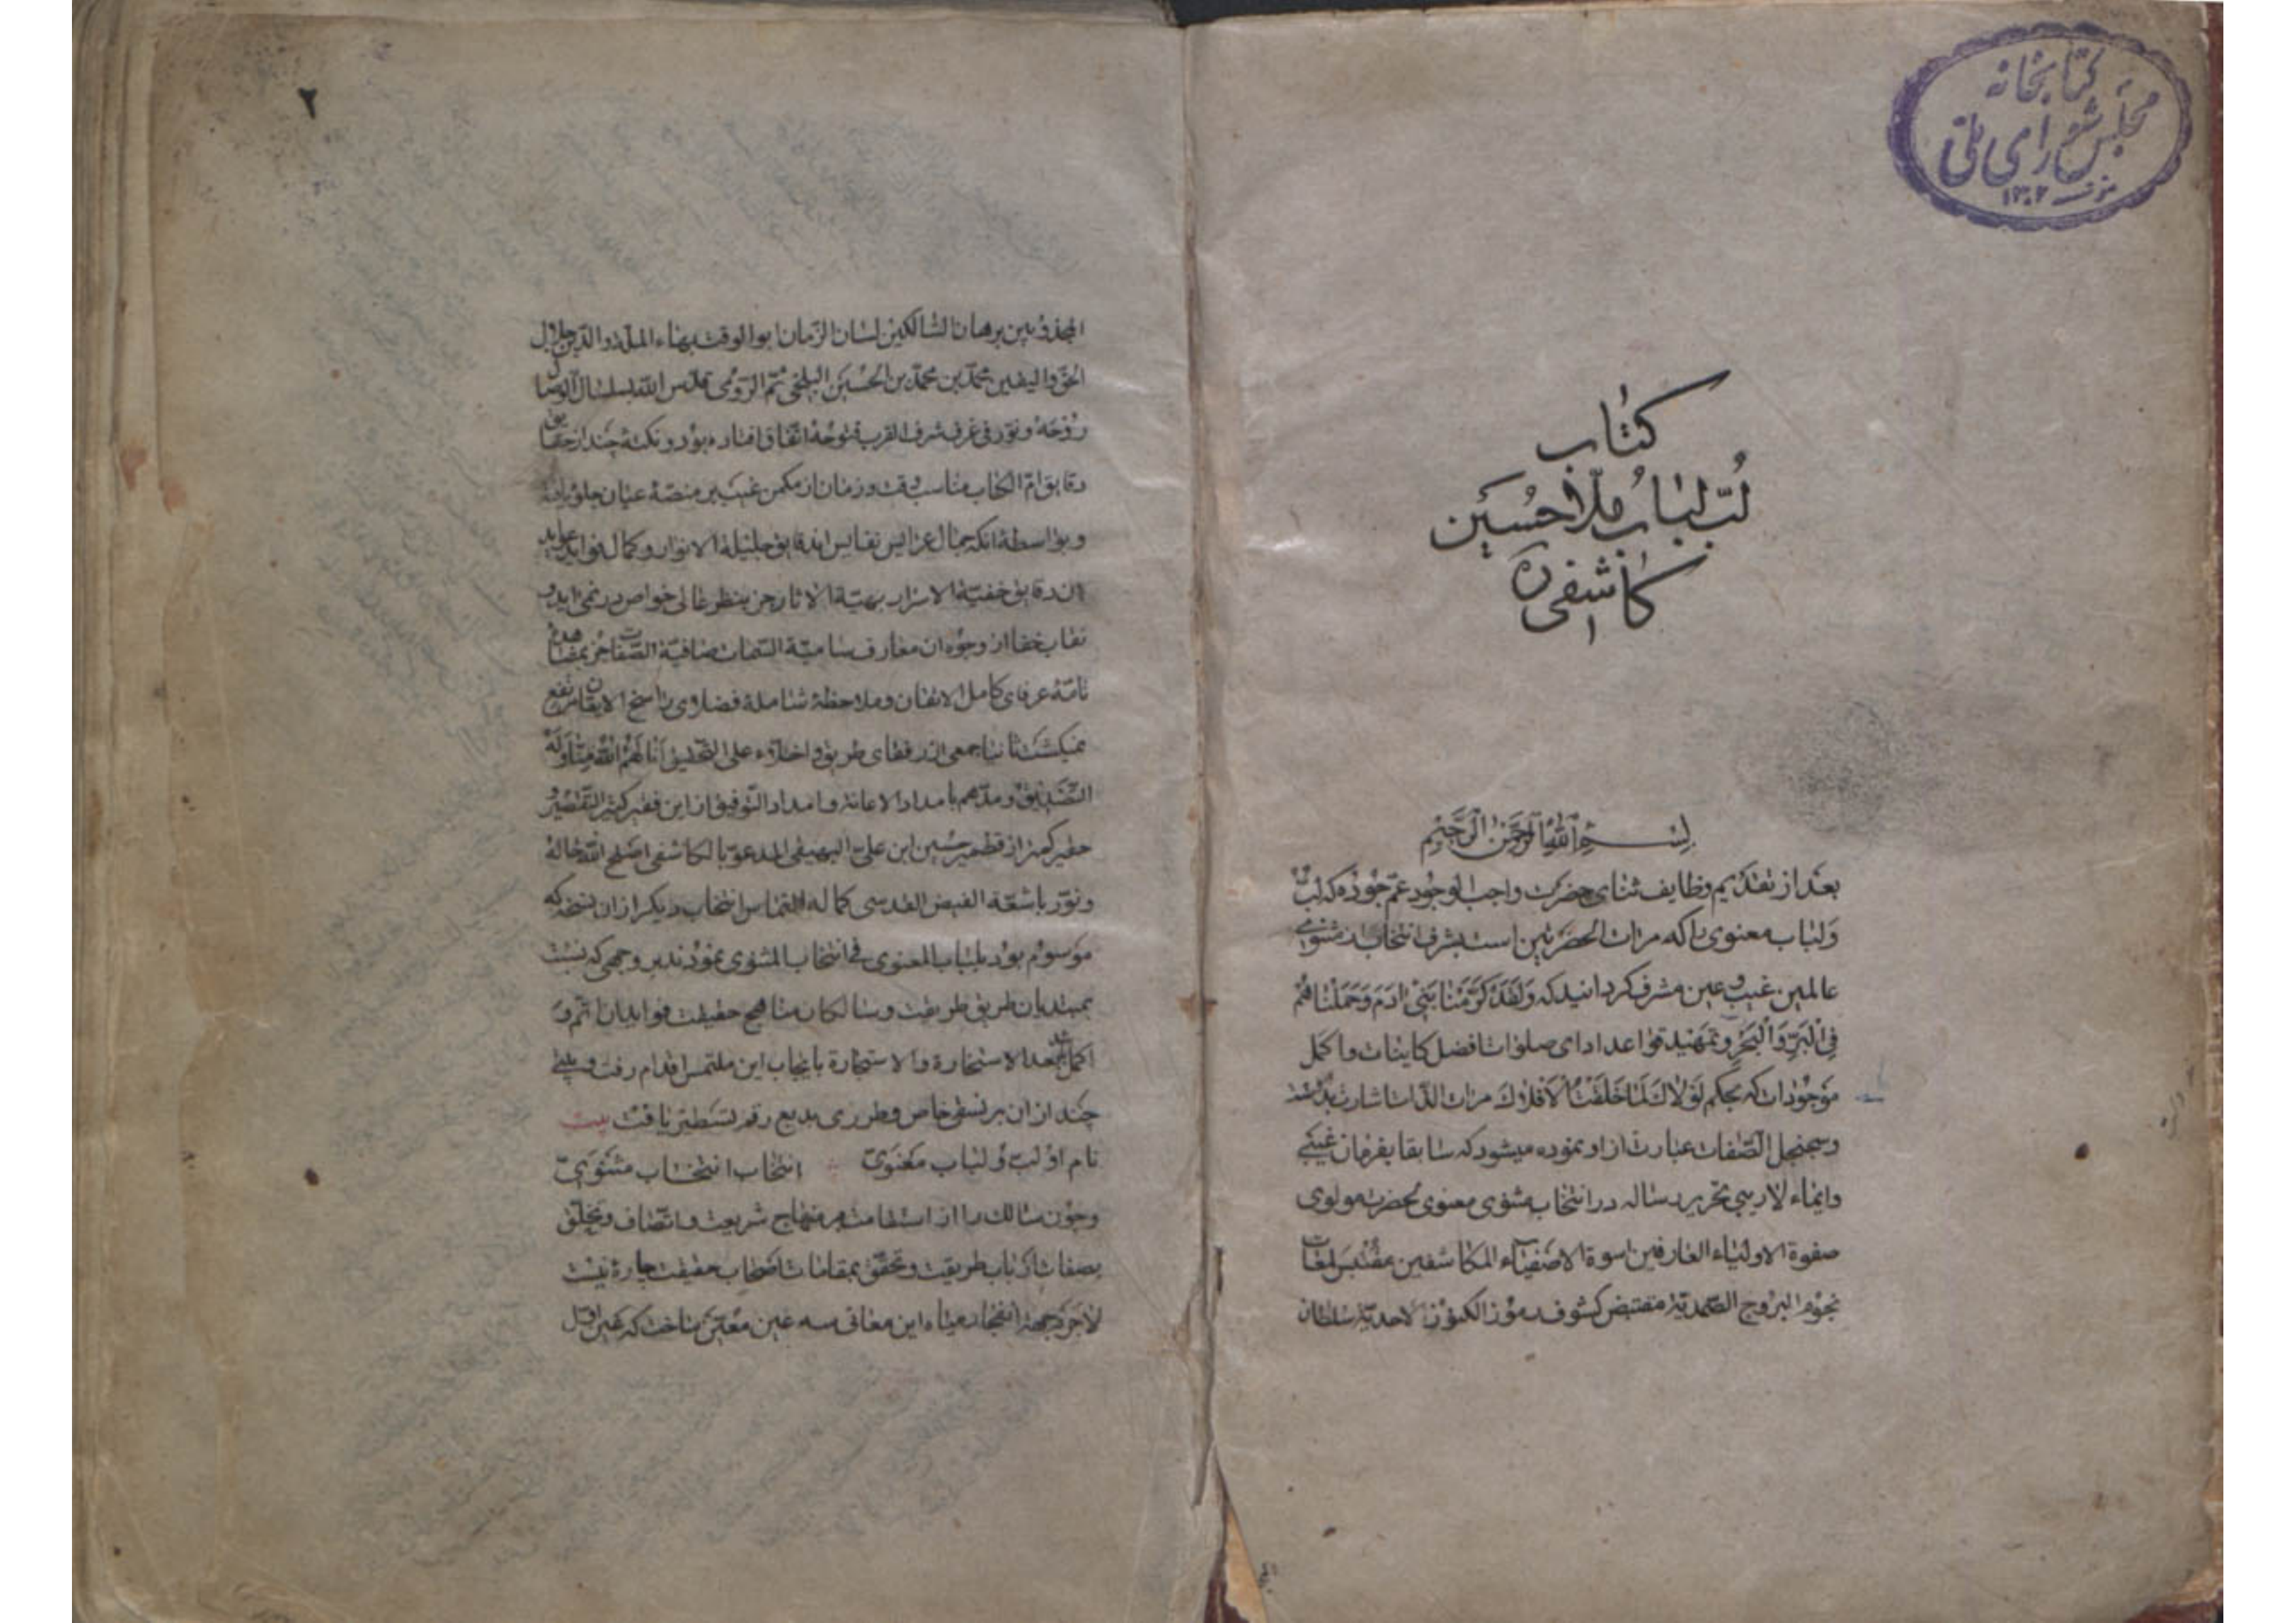 کتابخانه
مجلس شورای ملی
۱۳۰۲
کتاب
لب لباب ملا حسین
کاشفی ره
بسم الله الرحمن الرحیم
بعد از تقدیم وظایف ثنای حضرت واجب الوجود عم جوده که لب
و لباب معنوی را که مرات الحضرتین است بشرف انتخاب مثنوی
عالمین غیب و عین مشرف کردانید که وَلَقَدْ کَرَّمْنَا بَنِی ادَمَ وَحَمَلْنَاهُمْ
فِی الْبَرِّ وَالْبَحْرِ و تمهید قواعد ادای صلوات افضل کاینات و اکمل
موجودات که بحکم لولاک لما خلقت الافلاک مرات الذات اشارت بدوست
و سجنجل الصفات عبارت از او نموده میشود که سابقا بفرمان غیبی
و ایماء لاریبی تحریر رساله در انتخاب مثنوی معنوی لحضرت مولوی
صفوة الاولیاء العارفین اسوة الاصفیاء المکاشفین مقتبس لمعات
نجوم البروج الصمدیة مقتبض کشوف رموز الکنوز الاحدیة سلطان
۲
المجذوبین برهان السالکین لسان الزمان ابو الوقت بهاء الملة والدین جلال
الحق والیقین محمد بن محمد بن الحسین البلخی ثم الرومی قدس الله بسلسال الوصال
روحه و نور فی غرف شرف القرب فتوحه اتفاق افتاده بود و نکتهٔ چند از حقایق
دقایق ام الکتاب مناسب وقت و زمان از مکمن غیب بر منصهٔ عیان جلوه یافته
و بواسطهٔ انکه جمال عرایس نفایس ان دقایق جلیلة الانوار و کمال فواید عواید
ان دقایق خفیة الاسرار بهیة الاثار جز بنظر عالی خواص در نمی اید و
نقاب خفا از وجوه ان معارف سامیة السمات صافیة الصفات جز بمشاهدهٔ
تامهٔ عرفای کامل الاتقان و ملاحظهٔ شاملهٔ فضلای راسخ الایقان مرتفع
نمیکشت ثانیا جمعی از رفقای طریق و اخلاء علی التحقیق انالهم الله مناولة
التصدیق و مدهم بامداد الاعانة و امداد التوفیق از این فقیر کثیر التقصیر و
حقیر کمتر از قطمیر حسین ابن علی البیهقی المدعو بالکاشفی اصلح الله حاله
و نور باشعة الفیض القدسی کماله التماس انتخاب دیکر از ان نسخه که
موسوم بود بلباب المعنوی فی انتخاب المثنوی نمودند بر وجهی که نسبت
بمبتدیان طریق طریقت و سالکان مناهج حقیقت فواید ان اتم و
اکمل باشد بعد الاستخارة والاستجارة بایجاب این ملتمس اقدام رفت و بیتی
چند از ان بر نسقی خاص و طرزی بدیع رقم تسطیر یافت بیت
نام او لب لباب معنوی انتخاب انتخاب مثنوی
و چون سالک را از استقامت بر منهاج شریعت و اتصاف و تخلق
بصفات ارباب طریقت و تحقق بمقامات اصحاب حقیقت چاره نیست
لاجرم جهة انفجار میاه این معانی سه عین معین ساخت که عین اول